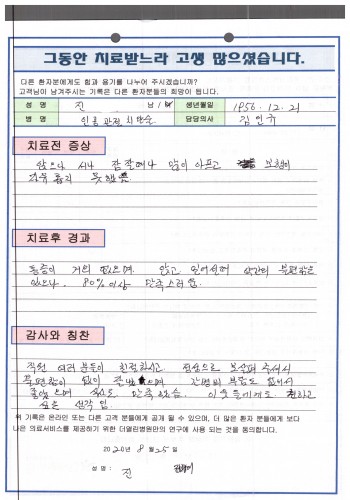 그동안 치료받느라 고생 많으셨습니다.
다른 환자분에게도 힘과 용기를 나누어 주시겠습니까?
고객님이 남겨주시는 기록은 다른 환자분들의 희망이 됩니다.
성 명 진 남 / 여 생년월일 1956. 12. 21
병 명 인공관절 치환술 담당의사 김민규
치료전 증상
앉으나 서나 잠잘때나 많이 아프고 보행이
자유롭지 못했음
치료후 경과
통증이 거의 없으며 앉고 일어설때 약간의 불편함은
있으나. 80% 이상 만족스러움.
감사와 칭찬
직원 여러분들이 친절하시고. 정성으로 보살펴 주셔서
불편함이 없이 잘 간병의 부담도 없어서
좋았으며 만족했슴. 이웃들에게도 권하고
싶은 생각임
위 기록은 온라인 또는 다른 고객 분들에게 공개 될 수 있으며, 더 많은 환자 분들에게 보다
나은 의료서비스를 제공하기 위한 더열린병원만의 연구에 사용 되는 것을 동의합니다.
2020년 8 월 25 일
성 명 : 진